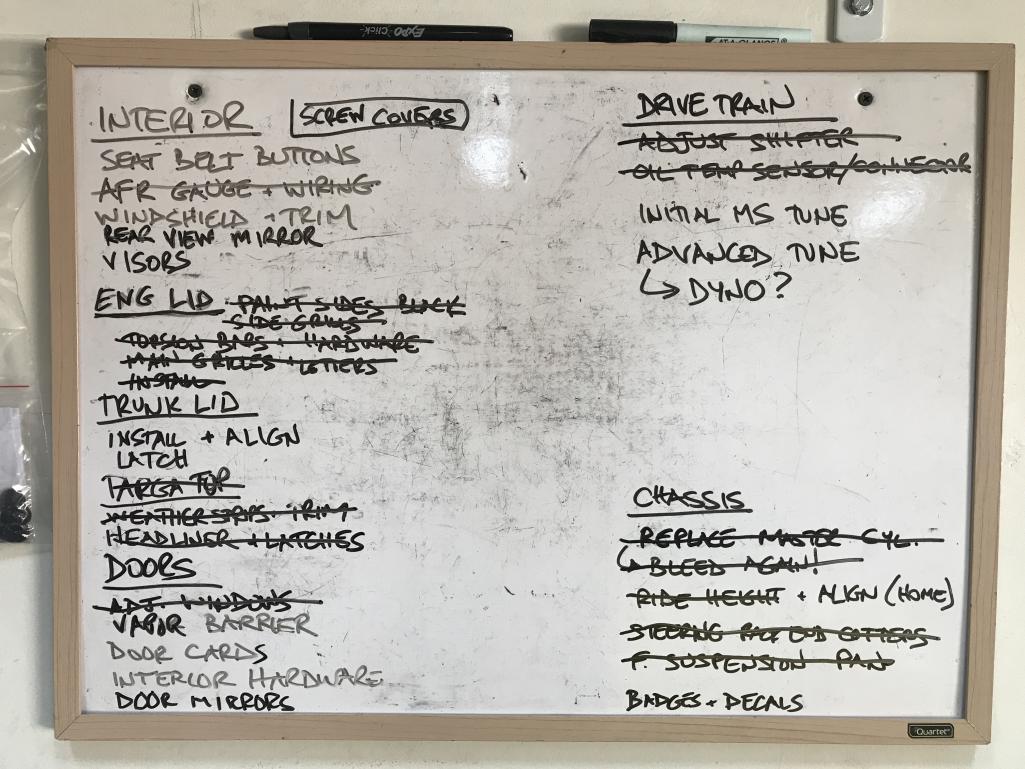 EXPO Click
AT-A-GLANCE
INTERIOR
SCREW COVERS
SEAT BELT BUTTONS
AFR GAUGE + WIRING
WINDSHIELD + TRIM
REAR VIEW MIRROR
VISORS
ENG LID PAINT SIDES BLACK
SIDE GRILLS
TORSION BARS + HARDWARE
MAIN GRILLES + LETTERS
INSTALL
TRUNK LID
INSTALL + ALIGN
LATCH
TARGA TOP
WEATHERSTRIPS TRIM
HEADLINER + LATCHES
DOORS
ADJ. WINDOWS
VAPOR BARRIER
DOOR CARDS
INTERIOR HARDWARE
DOOR MIRRORS
DRIVE TRAIN
ADJUST SHIFTER
OIL TEMP SENSOR/CONNECTOR
INITIAL MS TUNE
ADVANCED TUNE
↳ DYNO?
CHASSIS
REPLACE MASTER CYL.
↳ BLEED AGAIN!
RIDE HEIGHT + ALIGN (HOME)
STEERING RACK END COTTERS
F. SUSPENSION PAN
BADGES + DECALS
Quartet